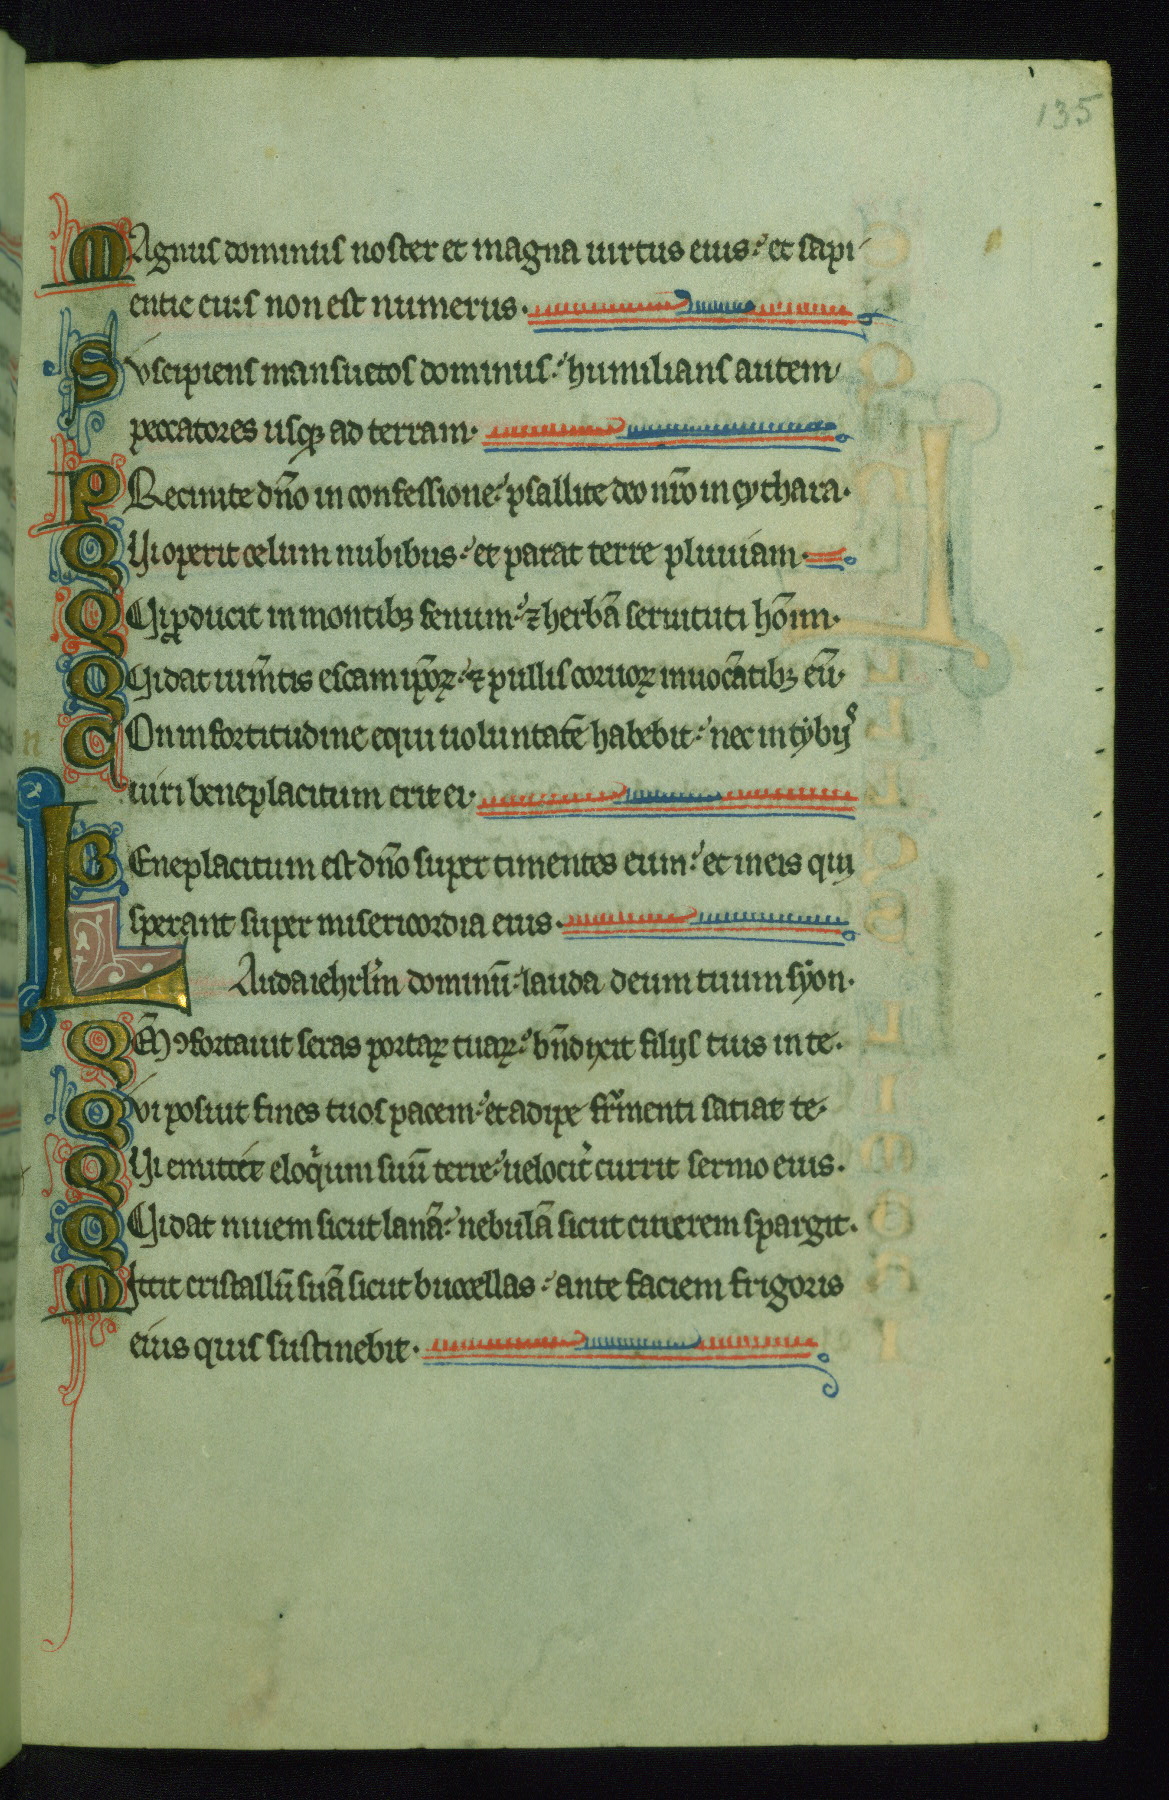 135
MAgnus dominus noster et magna uirtus eius: et sapi
entie eius non est numerus.
Suscipiens mansuetos dominus: humilians autem
peccatores usq; ad terram.
PRecinite dn̄o in confessione: psallite deo nr̄o in cythara.
QUi operit celum nubibus: et parat terre pluuiam.
QUi ꝓducit in montibꝫ fenum: ⁊ herbā seruituti hōim.
QUi dat ium̄tis escam ip̄oꝝ: ⁊ pullis coruoꝝ inuocātibꝫ eū.
NOn in fortitudine equi uoluntatē habebit: nec in tybijs
uiri beneplacitum erit ei.
BEneplacitum est dn̄o super timentes eum: et in eis qui
sperant super misericordia eius.
LAuda iehrl̄m dominū: lauda deum tuum syon.
QM̄ ꝯfortauit seras portaꝝ tuaꝝ: bn̄dixit filijs tuis in te.
Qui posuit fines tuos pacem: et adipe frumenti satiat te.
QUi emittit eloqium suū terre: uelocit̄ currit sermo eius.
QUi dat niuem sicut lanā: nebulā sicut cinerem spargit.
MIttit cristallū suā sicut buccellas: ante faciem frigoris
eius quis sustinebit.